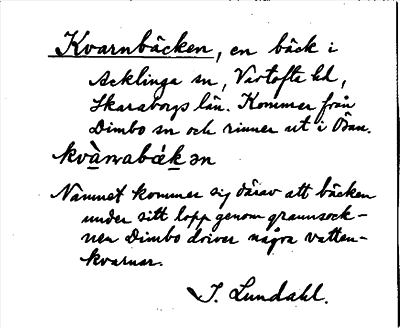 Kvarnbäcken, en bäck i
Acklinga sn, Vartofta hd,
Skaraborgs län. Kommer från
Dimbo sn och rinner ut i Ösan.
kvà̱rnabœ́k̲ən
Namnet kommer sig därav att bäcken
under sitt lopp genom grannsock-
nen Dimbo driver några vatten-
kvarnar.
I. Lundahl.